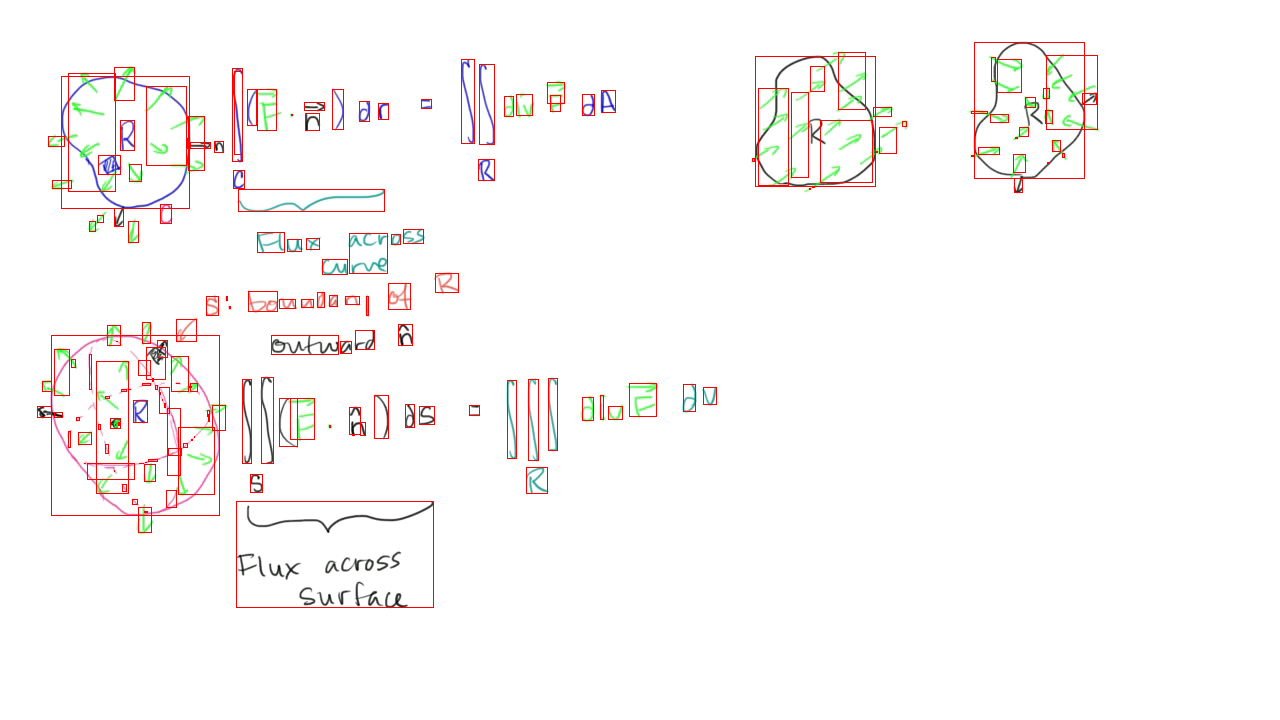 R
n
∫ ( F · n ) dr = ∬ div F dA
C
R
C
R
R
Flux across
curve
S: boundary of R
outward n̂
R
∬ ( F · n̂ ) ds = ∭ div F dv
S
R
Flux across
surface